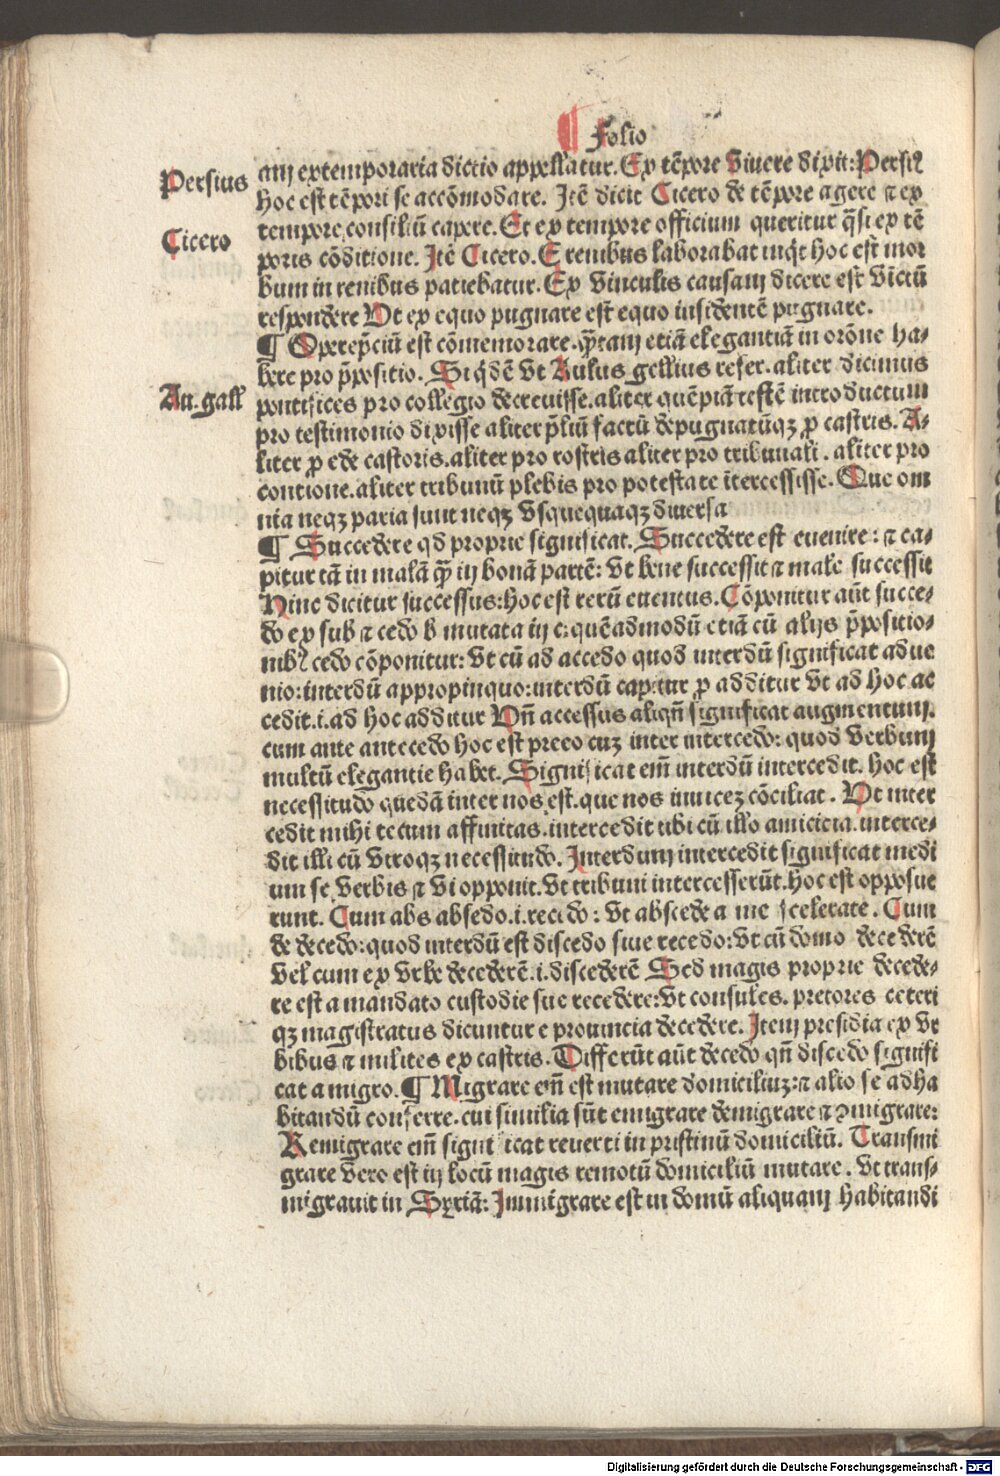 ¶ Folio
Persius
Cicero
Au. gall
am extemporaria dictio appellatur. Ex tēpore viuere dixit: Persiꝰ
hoc est tēpori se accōmodare. Itē dicit Cicero de tēpore agere ⁊ ex
tempore consiliū capere. Et ex tempore officium queritur q̄si ex tē
poris cōditione. Itē Cicero. E renibus laborabat inq̇t hoc est mor
bum in renibus patiebatur. Ex vinculis causam dicere est vīctū
respondere Vt ex equo pugnare est equo insidentē pugnare.
¶ Operep̄ciū est cōmemorare. q̄ꝫtam etiā elegantiā in orōne ha-
bere pro p̄positio. Siq̇dē vt Aulus gellius refer. aliter dicimus
pontifices pro collegio decreuisse. aliter quēpiā testē introductum
pro testimonio dixisse aliter p̄liū factū depugnatūqꝫ ꝓ castris. A-
liter ꝓ ede castoris. aliter pro rostris aliter pro tribunali. aliter pro
contione. aliter tribunū plebis pro potestate ītercessisse. Que om
nia neqꝫ paria sunt neqꝫ vsquequaqꝫ diuersa
¶ Succedere qd proprie significat. Succedere est euenire: ⁊ ca-
pitur tā in malā q̄ꝫ in bonā partē: vt bene successit ⁊ male successit
Hinc dicitur successus: hoc est rerū euentus. Cōponitur aūt succe-
do ex sub ⁊ cedo b mutata in c: quēadmodū etiā cū alijs p̄positio-
nibꝰ cedo cōponitur: vt cū ad accedo quod interdū significat adue
nio: interdū appropinquo: interdū capitur ꝓ additur vt ad hoc ac
cedit .i. ad hoc additur Vn̄ accessus aliqn̄ significat augmentum.
cum ante antecedo hoc est preeo cuꝫ inter intercedo: quod verbum
multū elegantie habet. Significat em̄ interdū intercedit. hoc est
necessitudo quedā inter nos est. que nos inuiceꝫ cōciliat. Vt inter
cedit mihi tecum affinitas. intercedit tibi cū illo amicicia. interce-
dit illi cū vtroqꝫ necessitudo. Interdum intercedit significat medi
um se verbis ⁊ vi opponit. vt tribuni intercesserūt. hoc est opposue
runt. Cum abs absedo .i. recedo: vt abscede a me scelerate. Cum
de decedo: quod interdū est discedo siue recedo: vt cū domo decederē
vel cum ex vrbe decederē .i. discederē Sed magis proprie decede-
re est a mandato custodie sue recedere: vt consules. pretores ceteri
qꝫ magistratus dicuntur e prouincia decedere. Item presidia ex vr
bibus ⁊ milites ex castris. Differūt aūt decedo qn̄ discedo signifi
cat a migro. ¶ Migrare em̄ est mutare domiciliuꝫ: ⁊ alio se adha
bitandū conferre. cui similia sūt emigrare demigrare ⁊ ꝯmigrare:
Remigrare em̄ significat reuerti in pristinū domiciliū. Transmi
grare vero est in locū magis remotū domiciliū mutare. Vt trans-
migrauit in Syriā: Immigrare est in domū aliquam habitandi
Digitalisierung gefördert durch die Deutsche Forschungsgemeinschaft - DFG